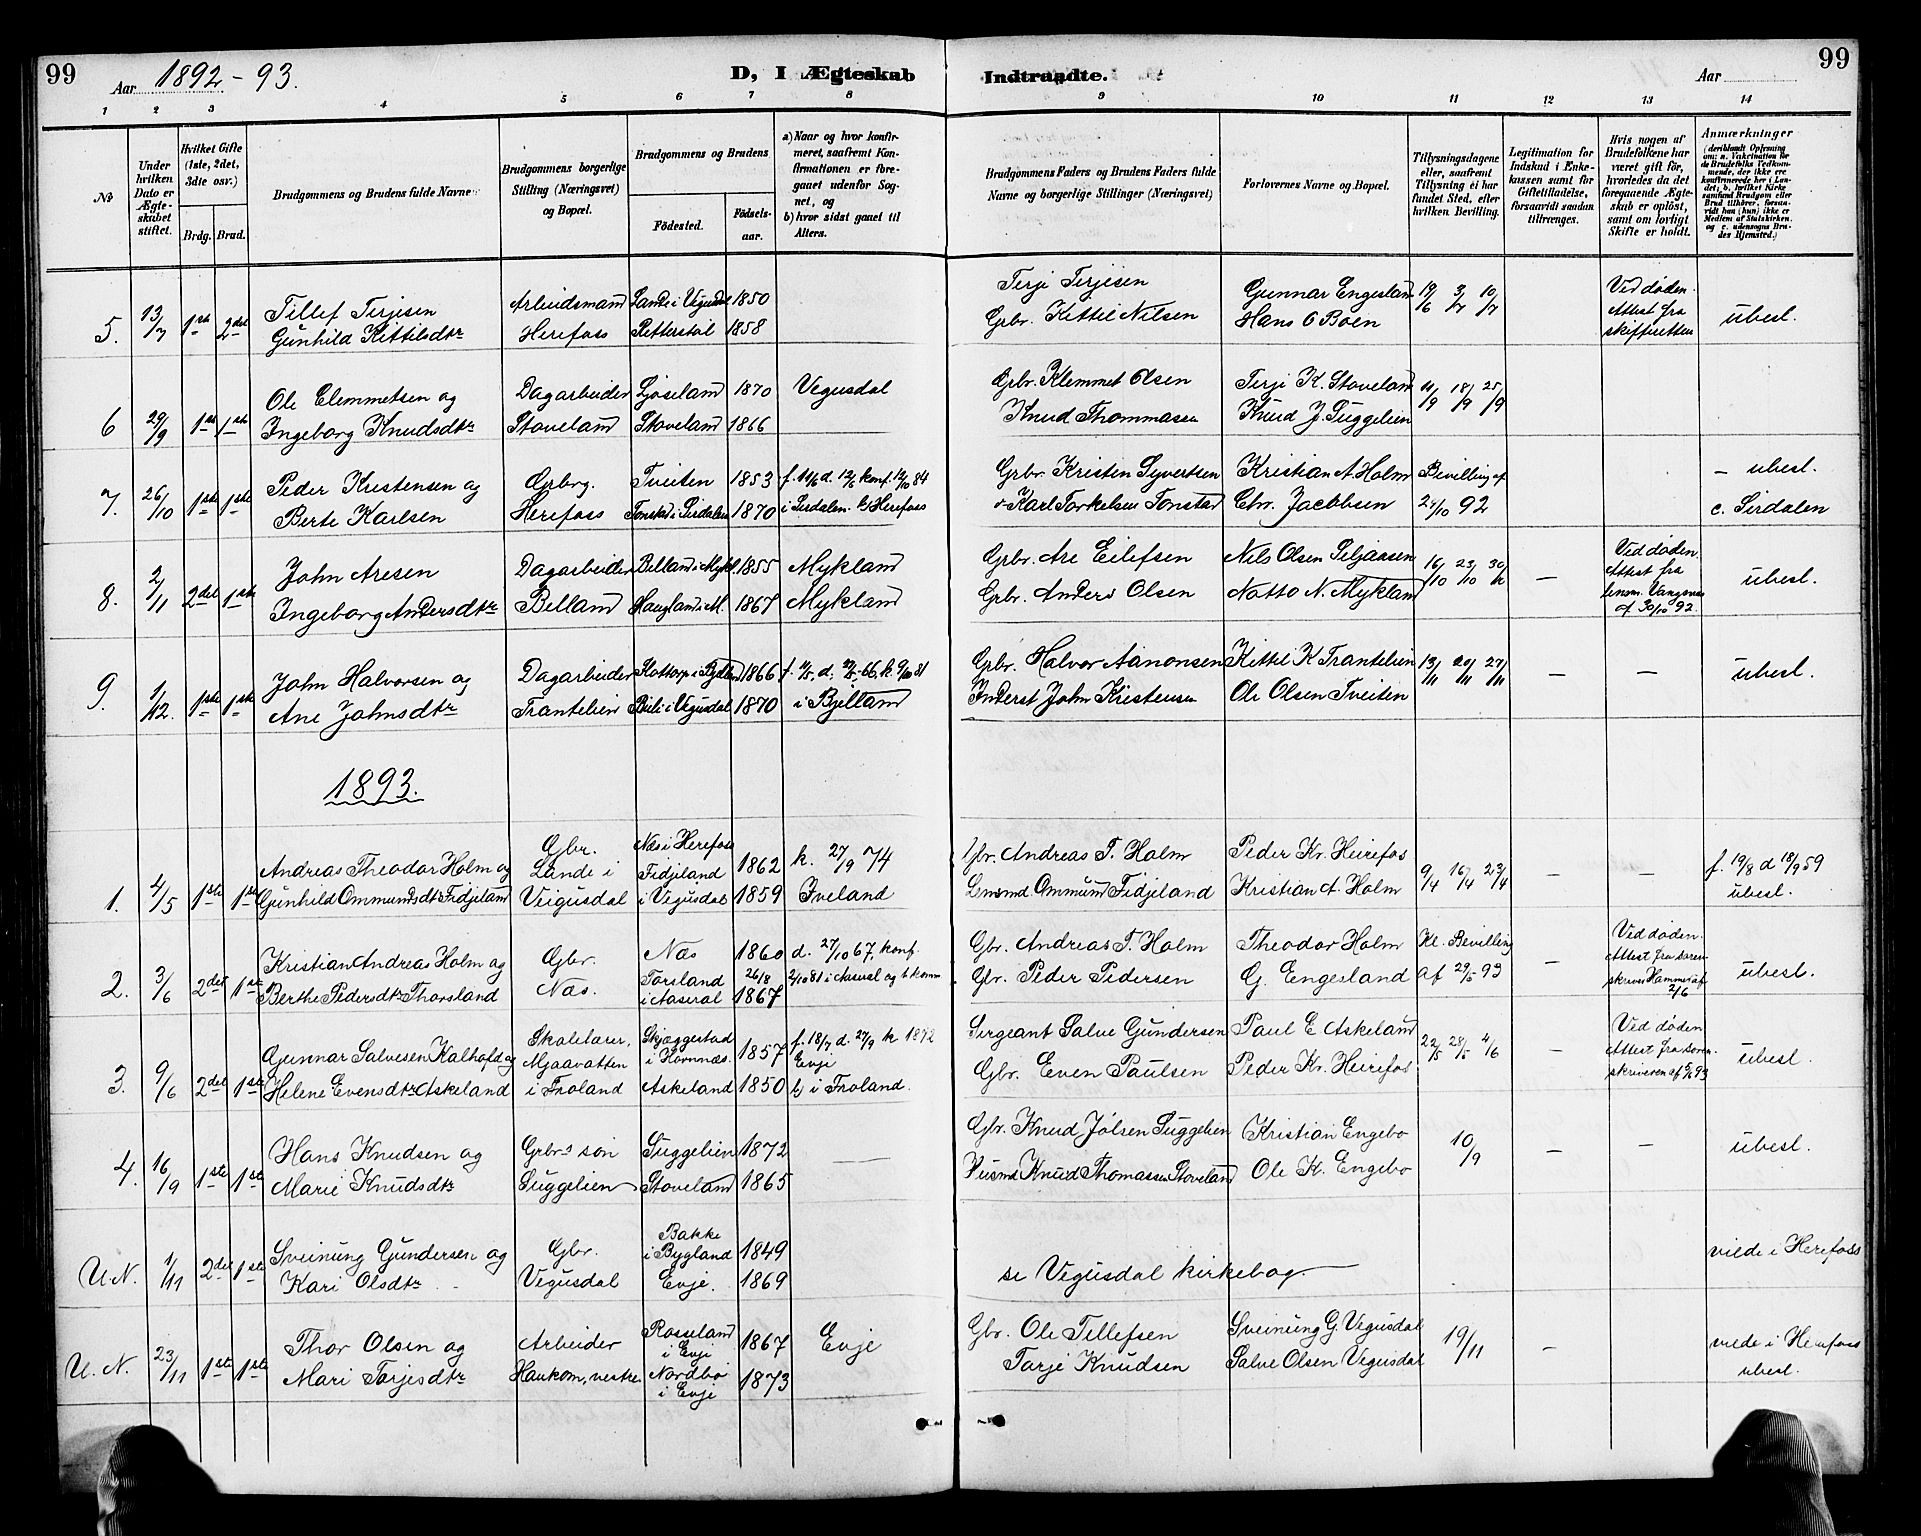 99
Aar 1892-93.
D, I Ægteskab Indtraadte.
Aar
99
1 2 3 4 5 6 7 8 9 10 11 12 13 14
No
Under hvilken Dato er Ægteskabet stiftet.
Hvilket Gifte (1ste, 2det, 3die osv.)
Brdg. Brud.
Brudgommens og Brudens fulde Navne
Brudgommens borgerlige Stilling (Næringsvei) og Bopæl.
Brudgommens og Brudens
Födested. Födselsaar.
a) Naar og hvor konfirmeret, saafremt Konfirmationen er foregaaet udenfor Sognet, og
b) hvor sidst gaaet til Alters.
Brudgommens Faders og Brudens Faders fulde Navne og borgerlige Stillinger (Næringsvei)
Forlovernes Navne og Bopæl.
Tillysningsdagene eller, saafremt Tillysning ei har fundet Sted, efter hvilken Bevilling.
Legitimation for Indskud i Enkekassen samt for Giftetilladelse, forsaavidt saadan tiltrænges.
Hvis nogen af Brudefolkene har været gift för, hvorledes da det foregaaende Ægteskab er oplöst, samt om lovligt Skifte er holdt.
Anmærkninger (deriblandt Oplysning om: a. Vakcination for de Brudefolks Vedkommende, der ikke ere konfirmerede her i Landet; b. hvilket Kirkesamfund Brudgom eller Brud tilhörer, forsaavidt han (hun) ikke er Medlem af Statskirken, og c. udensogns Brudes Hjemsted.)
5. 13/7 1ste 2det Tillef Terjesen Arbeidsmand Lande i Vegusdal 1850 Terje Terjesen Gunnar Engesland 19/6 3/7 10/7 Ved døden. ubesl.
Gunhild Kittilsdtr Herefoss Retterstøl 1858 Grbr. Kittil Nilsen Hans O Boen Attest fra skifteretten
6 29/9 1ste 1ste Ole Clemmetsen og Dagarbeider Ljøseland 1870 Vegusdal Grbr. Klemmet Olsen Terje K. Stoveland 11/9 18/9 25/9
Ingeborg Knudsdtr Stoveland Stoveland 1866 Knud Thommassen Knud J. Suggelien
7. 26/10 1ste 1ste Peder Kristensen og Grbrg. Tveiten 1853 f. 11/6 d. 12/6 konf. 12/10 84 Grbr. Kristen Syvertsen Kristian A. Holm Bevilling af – ubesl.
Berte Karlsen Herefoss Tonstad i Sirdalen 1870 i Sirdalen. b) Herefoss Karl Torkelsen Tonstad Chr. Jacobsen 24/10 92 c. Sirdalen
8. 2/11 2det 1ste John Aresen Dagarbeider Belland i Mykl. 1855 Mykland Grbr. Are Eilefsen Nils Olsen Seljaasen 16/10 23/10 30/10 – Ved døden. ubesl.
Ingeborg Andersdtr Belland Haugland i M. 1867 Mykland Grbr. Anders Olsen Notto N. Mykland Attest fra lensm. Vangsnes af 30/10 92.
9. 1/12. 1ste 1ste John Halvorsen og Dagarbeider 1866 i Bjelland Grbr. Halvor Aanonsen Kittil K Trantelien 13/11 20/11 27/11 – – ubesl.
Ane Johnsdtr Trantelien i Vegusdal 1870 Inderst John Kristensen Ole Olsen Tveiten
1893.
1. 4/5 1ste 1ste Andreas Theodor Holm og Gbr. Lande i Veigusdal Næs i Herefoss 1862 k. 27/9 74 Gbr. Andreas T. Holm Peder Kr. Heirefos 9/4 16/4 23/4 – – f. 19/8 d 18/9 59
Gunhild Ommundsdtr Fidjeland Fidjeland i Vegusdal 1859 Iveland Lensmd Ommund Fidjeland Kristian A. Holm ubesl.
2. 3/6 2det 1ste Kristian Andreas Holm og Gbr. Næs 1860 d. 27/10 67. konf. Gbr. Andreas T. Holm Theodor Holm Kl. Bevilling – Ved døden. ubesl.
Berthe Pedersdtr Thorsland Næs. Torsland i Aaseral 26/8 1867 2/10 81 i Aaseral og t. komm Gbr. Peder Pedersen G. Engesland af 29/5 93 Attest fra sorenskriver Hammer af 2/6
3. 9/6 2det 1ste Gunnar Salvesen Kalhofd og Skolelærer, Skjæggestad i Hornnæs. 1857 f. 18/7 d. 27/9 k 1872 Evje Sergeant Salve Gundersen Paul E Askeland 22/5 28/5 4/6 – Ved døden ubesl.
Helene Evensdtr Askeland Mjaavatten i Froland Askeland 1850 b) i Froland. Gbr. Even Paulsen Peder Kr. Heirefos Attest fra sorenskriveren af 93
4. 16/9 1ste 1ste Hans Knudsen og Grbrs søn Suggelien 1872 – Gbr. Knud Jølsen Suggelien Kristian Engebo 10/9 – – ubesl.
Marie Knudsdtr Suggelien Stoveland 1865 Husmd Knud Thomassen Stoveland Ole K. Engebo
U.N. 1/11 2det 1ste Sveinung Gundersen og Gbr. Bakke i Bygland 1849 se Vegusdal kirkebog. viede i Herefoss
Kari Olsdtr Vegusdal Evje. 1869
U.N. 23/11 1ste 1ste Thor Olsen og Arbeider Rosseland i Evje 1867 Evje Gbr. Ole Tillefsen Sveinung G. Vegusdal 19/11 – viede i Herefoss
Mari Tarjesdtr Haukom, vestre Nordbø i Evje 1873 Tarje Knudsen Salve Olsen Vegusdal ubesl.